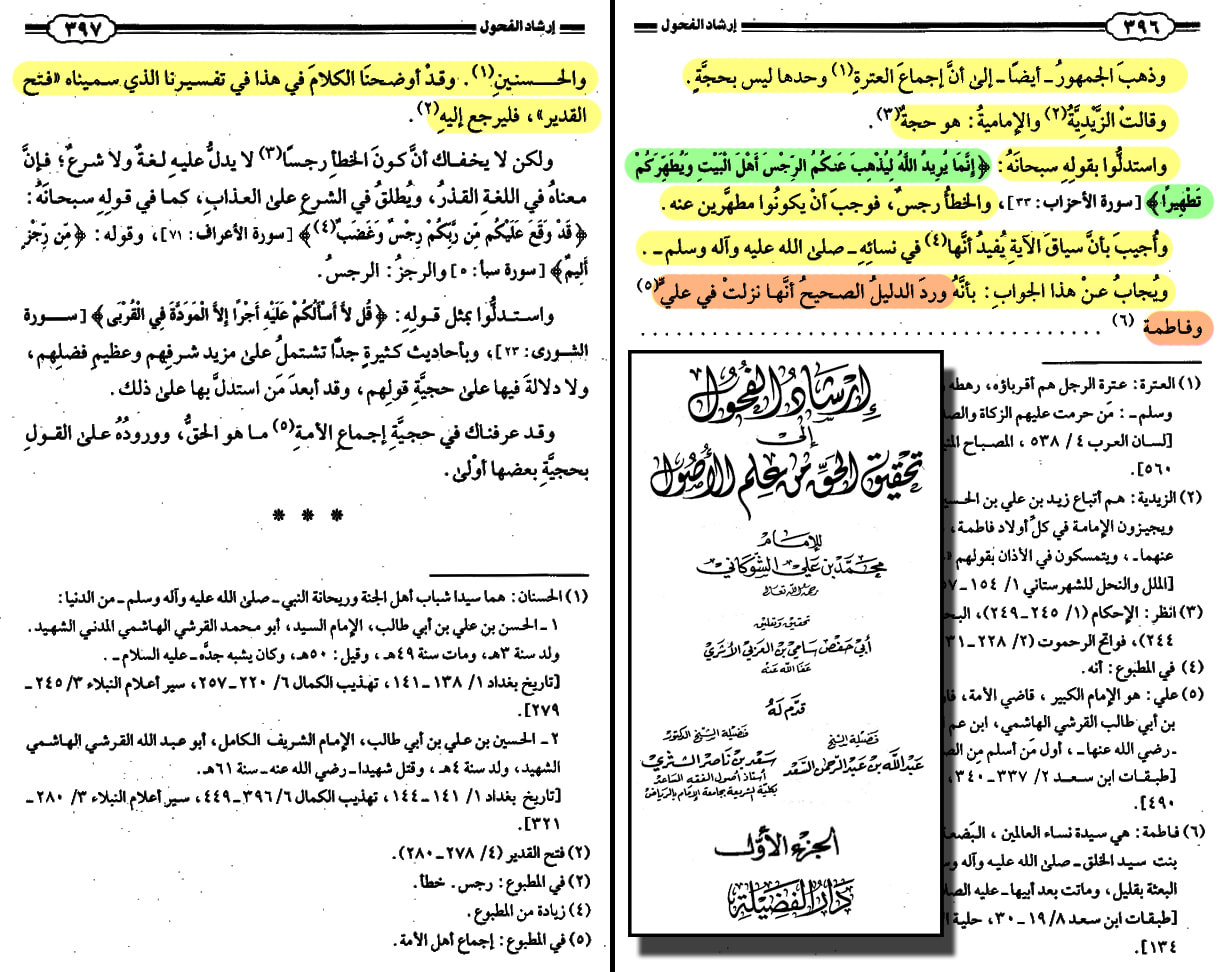 ٣٩٦
إرشاد الفحول
وذهبَ الجمهورُ ـ أيضًا ـ إلى أنَّ إجماعَ العترةِ(١) وحدها ليس بحجةٍ.
وقالتْ الزَّيْدِيَّةُ(٢) والإماميةُ: هو حجةٌ(٣).
واستدلُّوا بقولهِ سبحانَهُ: ﴿إِنَّمَا يُرِيدُ اللَّهُ لِيُذْهِبَ عَنكُمُ الرِّجْسَ أَهْلَ الْبَيْتِ وَيُطَهِّرَكُمْ
تَطْهِيرًا﴾ [سورة الأحزاب: ٣٣]، والخطأُ رجسٌ، فوجبَ أنْ يكونُوا مطهَّرين عنه.
وأُجيبَ بأنَّ سياقَ الآيةِ يُفيدُ أنَّها(٤) في نسائِهِ ـ صلىٰ الله عليه وآله وسلم ـ.
ويُجابُ عنْ هذا الجوابِ: بأنَّهُ وردَ الدليلُ الصحيحُ أنَّها نزلتْ في عليٍّ(٥)
وفاطمةَ(٦) ......................................
(١) العترة: عترة الرجل هم أقرباؤه، رهطه
وسلم ـ: مَن حرمت عليهم الزكاة والص
[لسان العرب ٤/ ٥٣٨، المصباح المن
٥٦٠].
(٢) الزيدية: هم أتباع زيد بن علي بن الحسي
ويجيزون الإمامة في كلِّ أولاد فاطمة،
عنهما ـ، ويتمسكون في الأذان بقولهم «
[الملل والنحل للشهرستاني ١/ ١٥٤ ـ ٥٧
(٣) انظر: الإحكام (١/ ٢٤٥ ـ ٢٤٩)، البح
٢٤٤)، فواتح الرحموت (٢/ ٢٢٨ ـ ٣١
(٤) في المطبوع: أنه.
(٥) علي: هو الإمام الكبير، قاضي الأمة، فار
بن أبي طالب القرشي الهاشمي، ابن عم
ـ رضي الله عنها ـ، أول مَن أسلم مِن الص
[طبقات ابن سعد ٢/ ٣٣٧ ـ ٣٤٠،
٤٩٠].
(٦) فاطمة: هي سيدة نساء العالمين، البَضعة
بنت سيد الخلق ـ صلىٰ الله عليه وآله وس
البعثة بقليل، وماتت بعد أبيها ـ عليه الصلا
[طبقات ابن سعد ٨/ ١٩ ـ ٣٠، حلية ا
١٣٤].
إرشاد الفحول
إلىٰ
تحقيق الحق من علم الأصول
للإمام
محمد بن علي الشوكاني
رحمه الله تعالى
تحقيق وتعليق
أبي حفص سامي بن العربي الأثري
عفا الله عنه
قدم له
فضيلة الشيخ
عبد الله بن عبد الرحمن السعد
فضيلة الشيخ الدكتور
سعد بن ناصر الشثري
أستاذ أصول الفقه المساعد
بكلية الشريعة بجامعة الإمام بالرياض
الجزء الأول
دار الفضيلة
إرشاد الفحول
٣٩٧
والحسنينِ(١). وقدْ أوضحنَا الكلامَ في هذا في تفسيرنا الذي سميناه «فتح
القدير»، فليرجع إليهِ(٢).
ولكن لا يخفاك أنَّ كونَ الخطأِ رجسًا(٣) لا يدلُّ عليهِ لغةٌ ولا شرعٌ؛ فإنَّ
معناهُ في اللغةِ القذرُ، ويُطلقُ في الشرعِ علىٰ العذابِ، كما في قولهِ سبحانَهُ:
﴿قَدْ وَقَعَ عَلَيْكُم مِّن رَّبِّكُمْ رِجْسٌ وَغَضَبٌ(٤)﴾ [سورة الأعراف: ٧١]، وقوله: ﴿مِّن رِّجْزٍ
أَلِيمٌ﴾ [سورة سبأ: ٥] والرجزُ: الرجسُ.
واستدلُّوا بمثلِ قولهِ: ﴿قُل لاَّ أَسْأَلُكُمْ عَلَيْهِ أَجْرًا إِلاَّ الْمَوَدَّةَ فِي الْقُرْبَى﴾ [سورة
الشورى: ٢٣]، وبأحاديث كثيرةٍ جدًّا تشتملُ علىٰ مزيد شرفِهم وعظيمِ فضلِهم،
ولا دلالةَ فيها علىٰ حجيَّةِ قولِهم، وقد أبعدَ مَن استدلَّ بها علىٰ ذلك.
وقد عرفناك في حجيَّةِ إجماعِ الأمةِ(٥) ما هو الحقُّ، وورودُهُ علىٰ القولِ
بحجيَّةِ بعضها أوْلىٰ.
* * *
(١) الحسنان: هما سيدا شباب أهل الجنة وريحانة النبي ـ صلىٰ الله عليه وآله وسلم ـ من الدنيا:
١ ـ الحسن بن علي بن أبي طالب، الإمام السيد، أبو محمد القرشي الهاشمي المدني الشهيد.
ولد سنة ٣هـ، ومات سنة ٤٩هـ، وقيل: ٥٠هـ، وكان يشبه جدَّه ـ عليه السلام ـ.
[تاريخ بغداد ١/ ١٣٨ ـ ١٤١، تهذيب الكمال ٦/ ٢٢٠ ـ ٢٥٧، سير أعلام النبلاء ٣/ ٢٤٥ ـ
٢٧٩].
٢ ـ الحسين بن علي بن أبي طالب، الإمام الشريف الكامل، أبو عبد الله القرشي الهاشمي
الشهيد، ولد سنة ٤هـ، وقتل شهيدا ـ رضي الله عنه ـ سنة ٦١هـ.
[تاريخ بغداد ١/ ١٤١ ـ ١٤٤، تهذيب الكمال ٦/ ٣٩٦ ـ ٤٤٩، سير أعلام النبلاء ٣/ ٢٨٠ ـ
٣٢١].
(٢) فتح القدير (٤/ ٢٧٨ ـ ٢٨٠).
(٢) في المطبوع: رجس. خطأ.
(٤) زيادة من المطبوع.
(٥) في المطبوع: إجماع أهل الأمة.